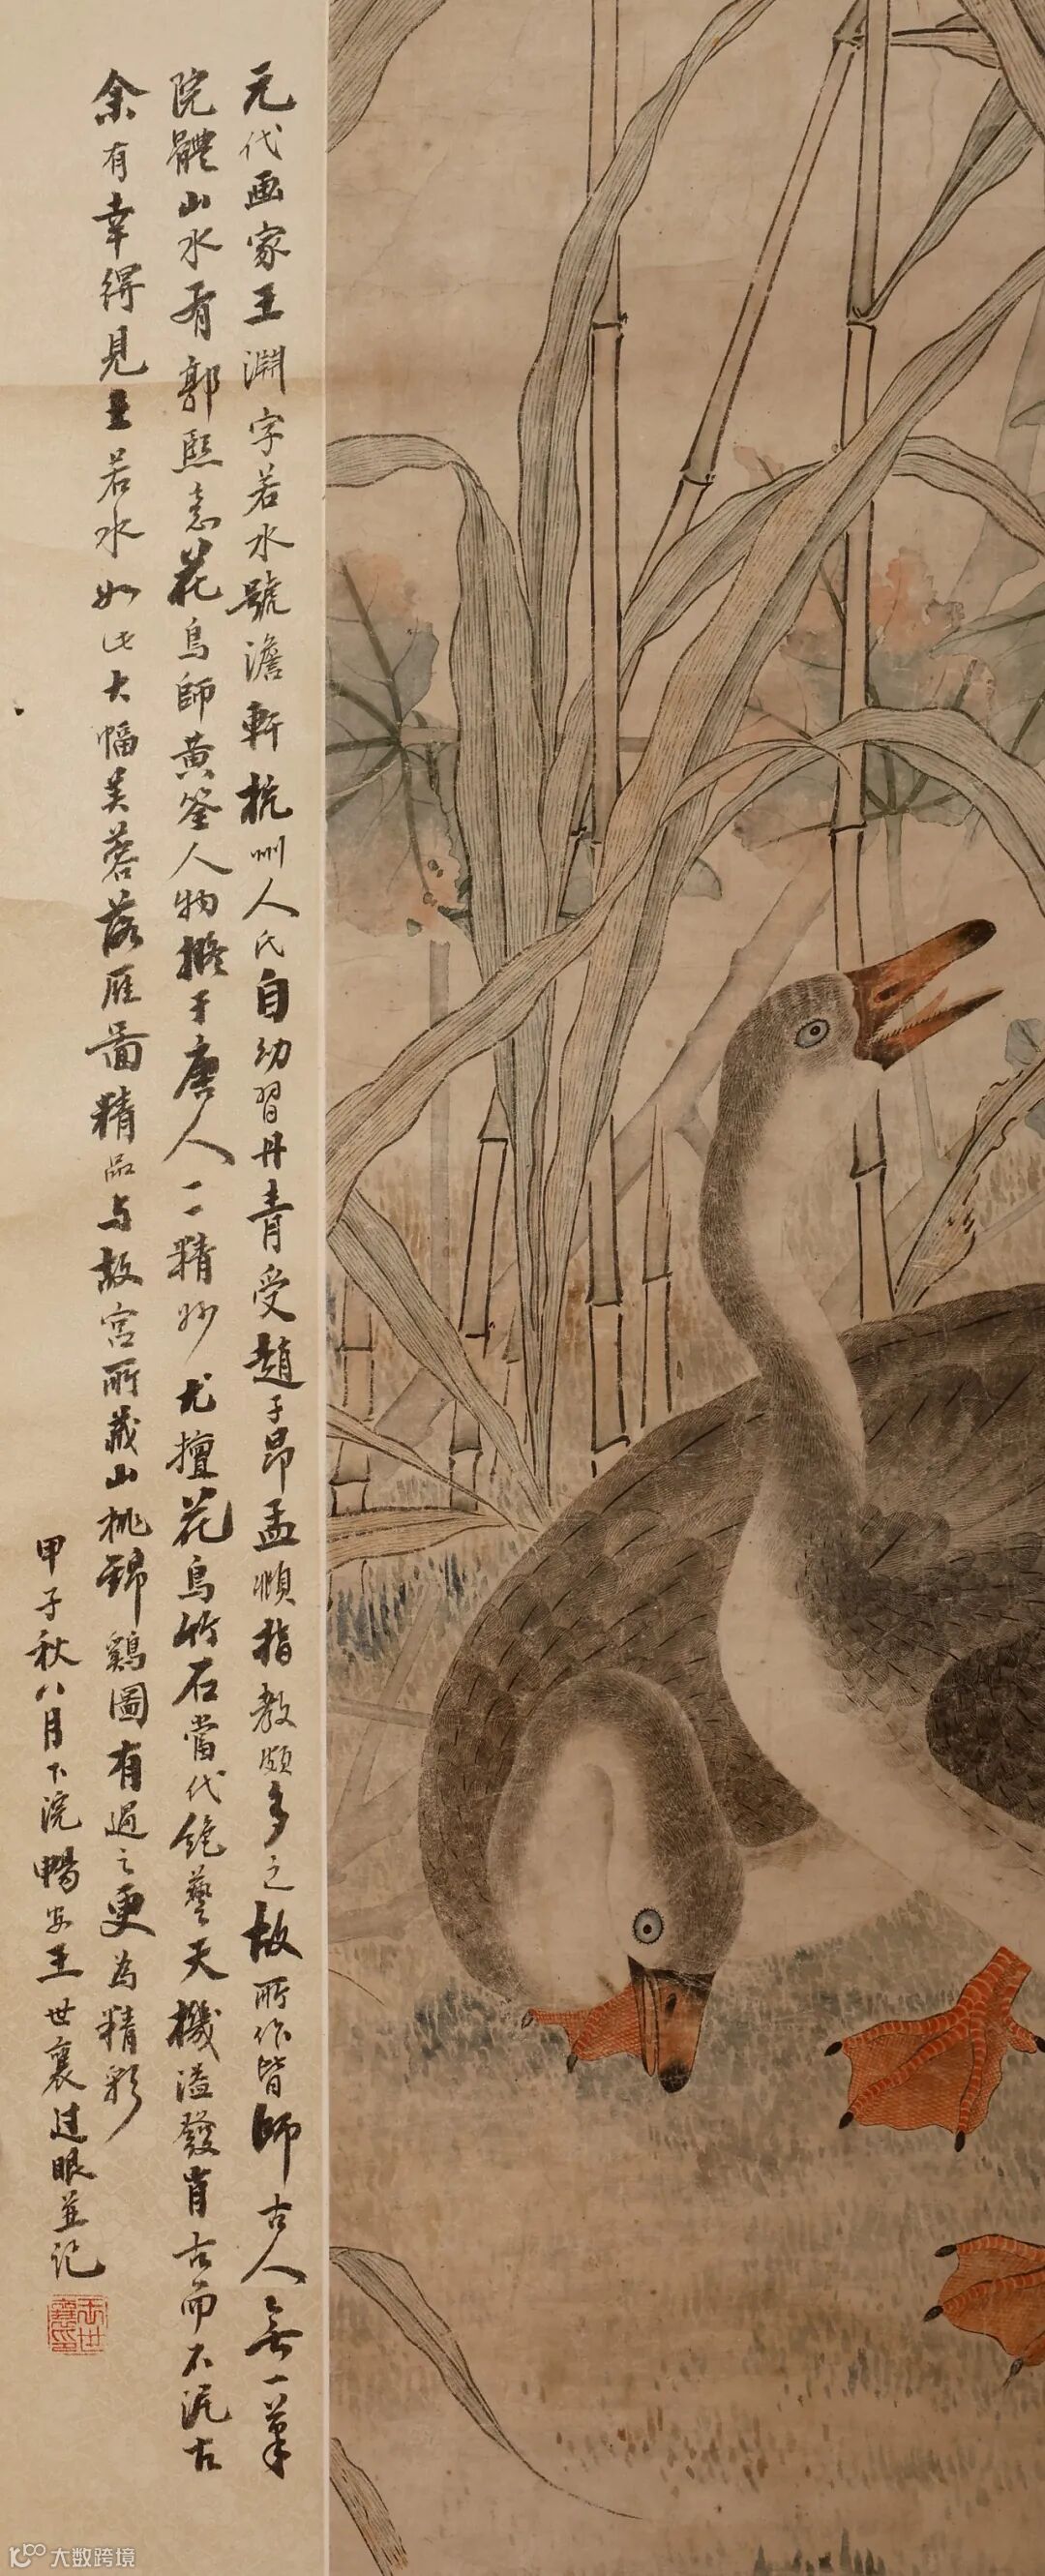 元代画家王淵字若水號澹軒杭州人氏自幼習丹青受趙子昂孟頫指教頗多之故所作皆師古人無一筆
院體山水有郭熙意花鳥師黃筌人物擬于唐人一一精妙尤擅花鳥竹石當代絶藝天機溢發肖古而不泥古
余有幸得見王若水如此大幅芙蓉落雁圖精品与故宮所藏山桃錦鷄圖有過之更為精彩
甲子秋八月下浣暢安王世襄过眼並记
王世襄印
大数跨境